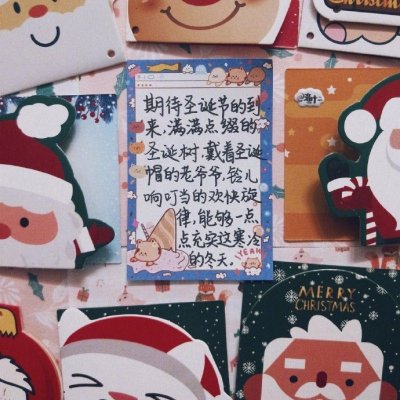 Christmas
期待圣诞节的到
来,满满点缀的
圣诞树.戴着圣诞
帽的老爷爷,铃儿
响叮当的欢快旋
律,能够一点
点充实这寒冷
的冬天.
YEAH
MERRY
CHRISTMAS